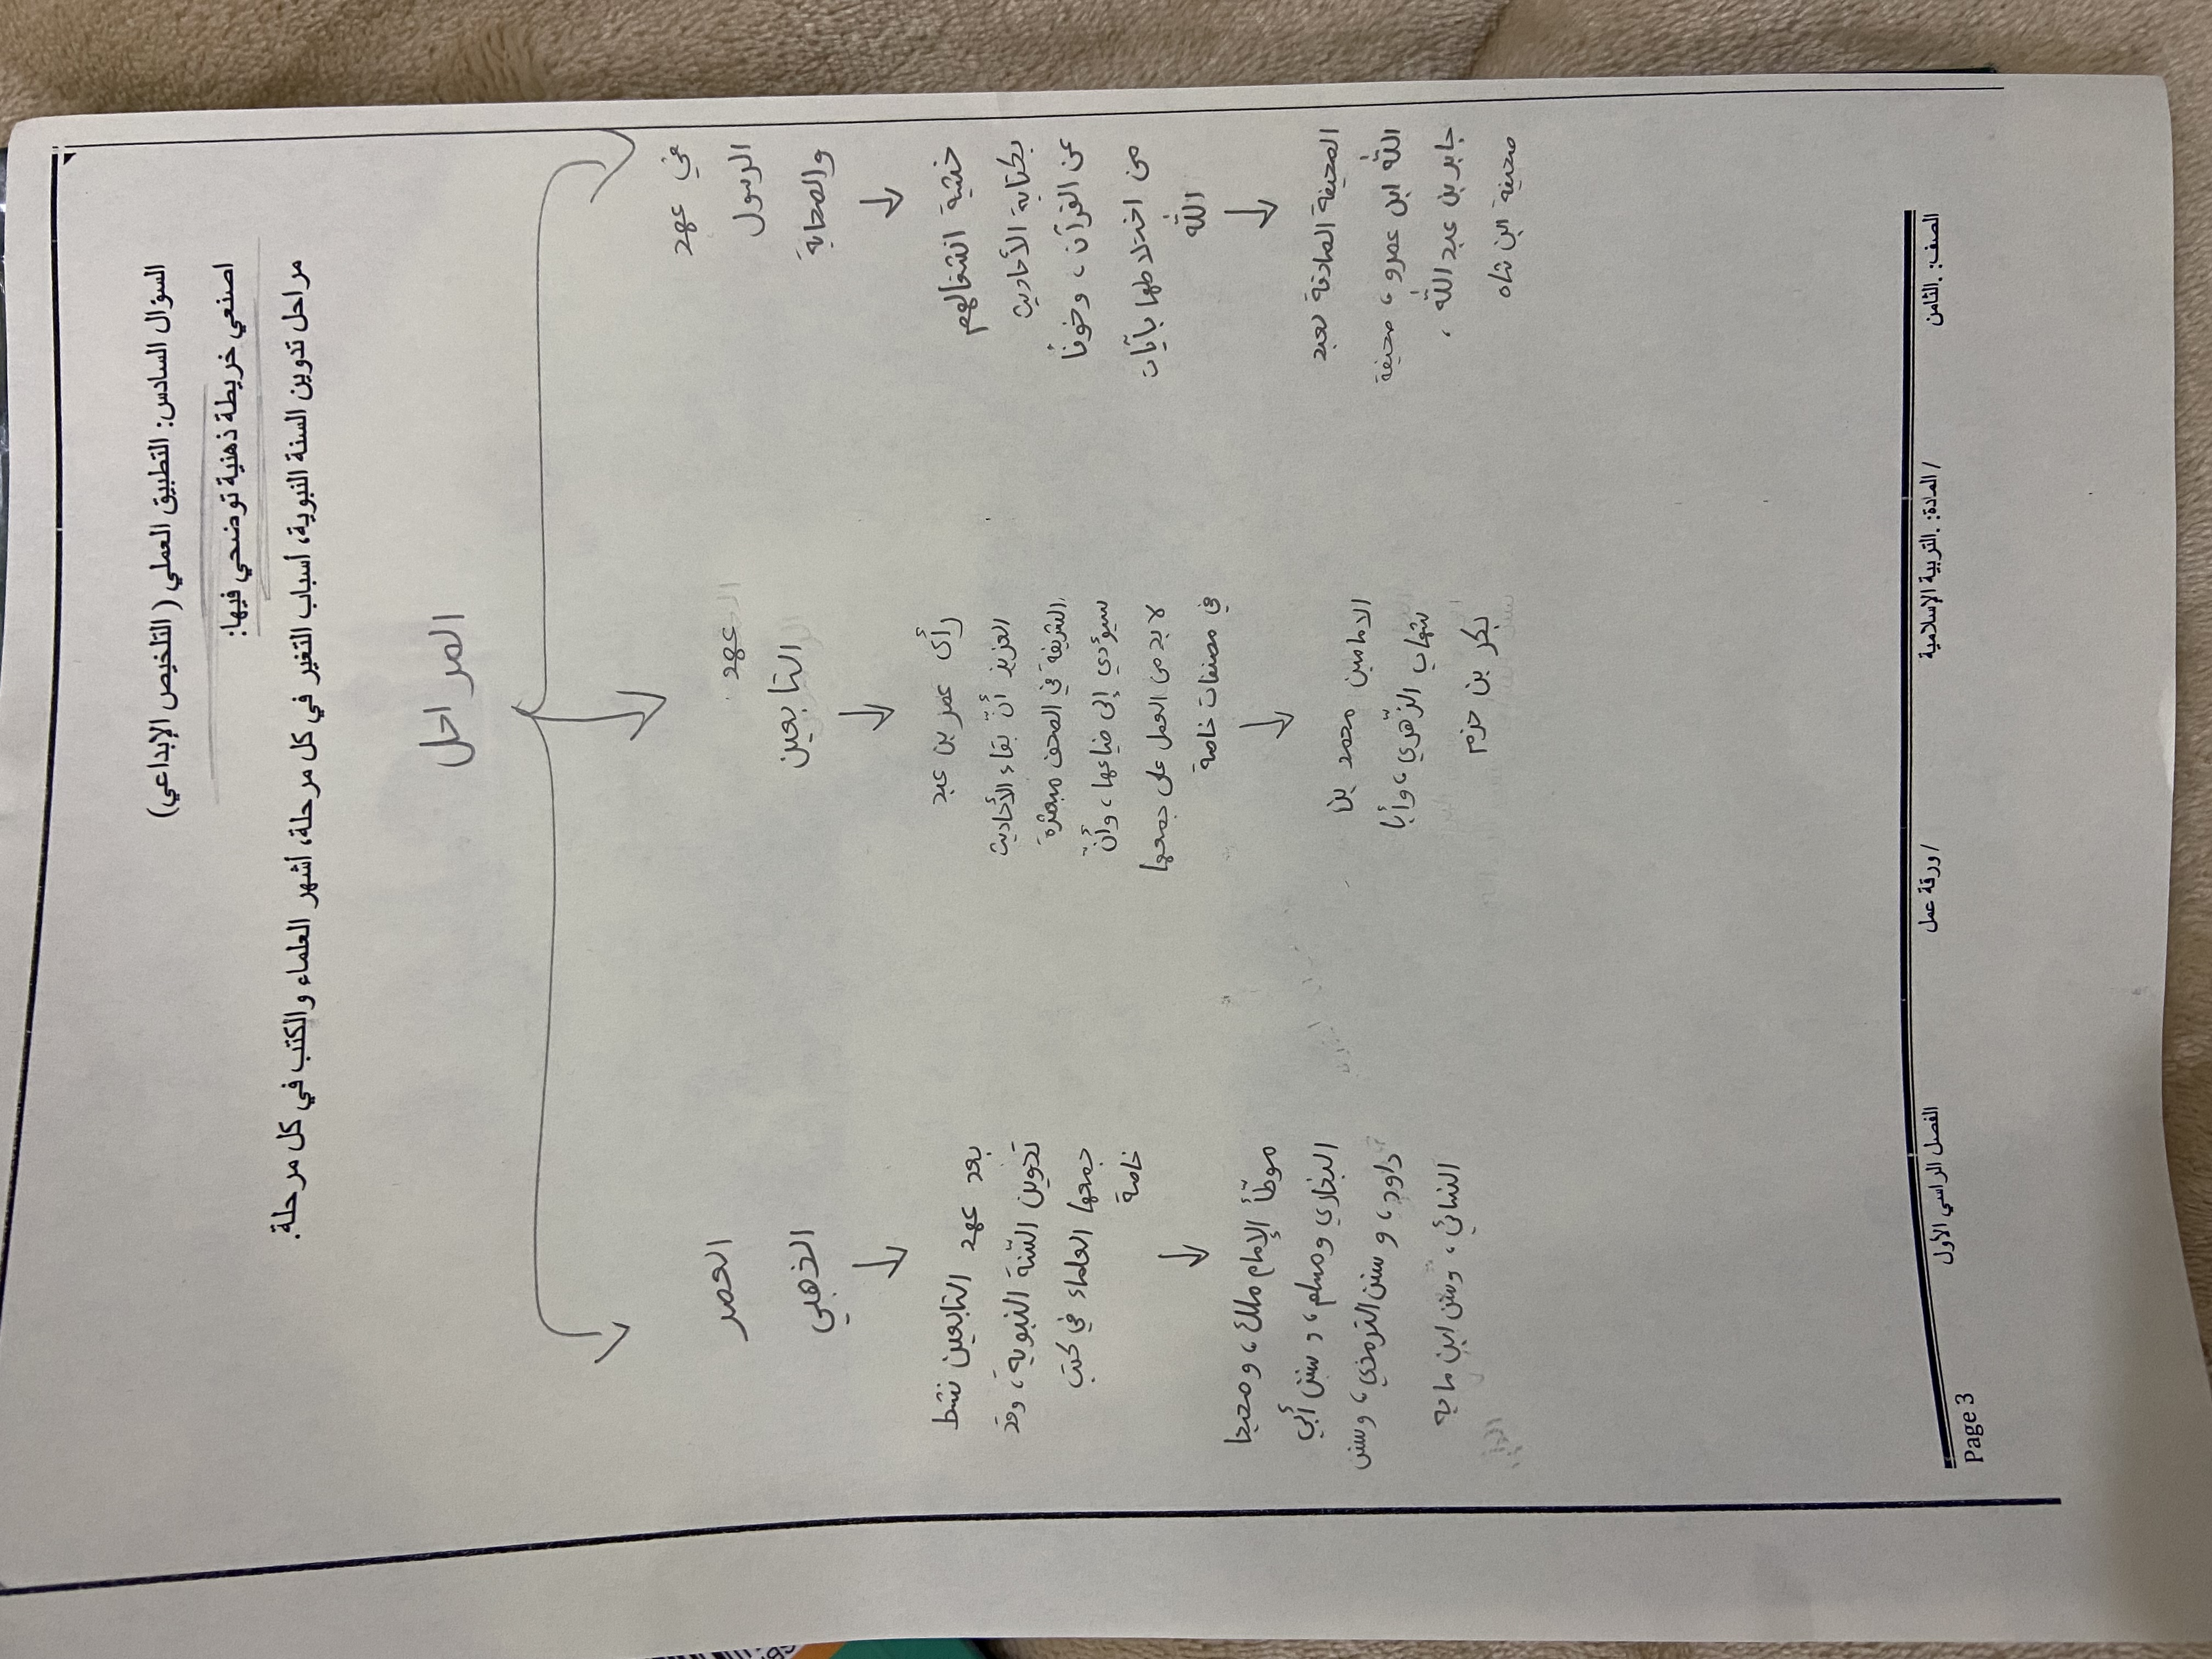 السؤال السادس: التطبيق العملي ( التلخيص الإبداعي)
اصنعي خريطة ذهنية توضحي فيها:
مراحل تدوين السنة النبوية، أسباب التغير في كل مرحلة، أشهر العلماء والكتب في كل مرحلة.
المراحل
في عهد
الرسول
والصحابة
خشية انشغالهم
بكتابة الأحاديث
عن القرآن، وخوفًا
من اختلاطها بآيات
الله
الصحيفة الصادقة لعبد
الله ابن عمرو، صحيفة
جابر بن عبد الله،
صحيفة ابن شاه
عهد
التابعين
رأى عمر بن عبد
العزيز أنّ بقاء الأحاديث
الشريفة في الصحف مبعثرة
سيؤدي إلى ضياعها، وأنّ
لا بد من العمل على جمعها
في مصنفات خاصة
الامامين محمد بن
شهاب الزّهري، وأبا
بكر بن حزم
العصر
الذهبي
بعد عهد التابعين نشط
تدوين السّنة النبوية، وقد
جمعها العلماء في كتب
خاصة
موطّأ الإمام ملك، وصحيحا
البخاري ومسلم، وسنن أبي
داود، وسنن الترمذي، وسنن
النسائي، وسنن ابن ماجه
الصف: .الثامن
/ المادة: .التربية الإسلامية
/ ورقة عمل
الفصل الراسي الأول
Page 3